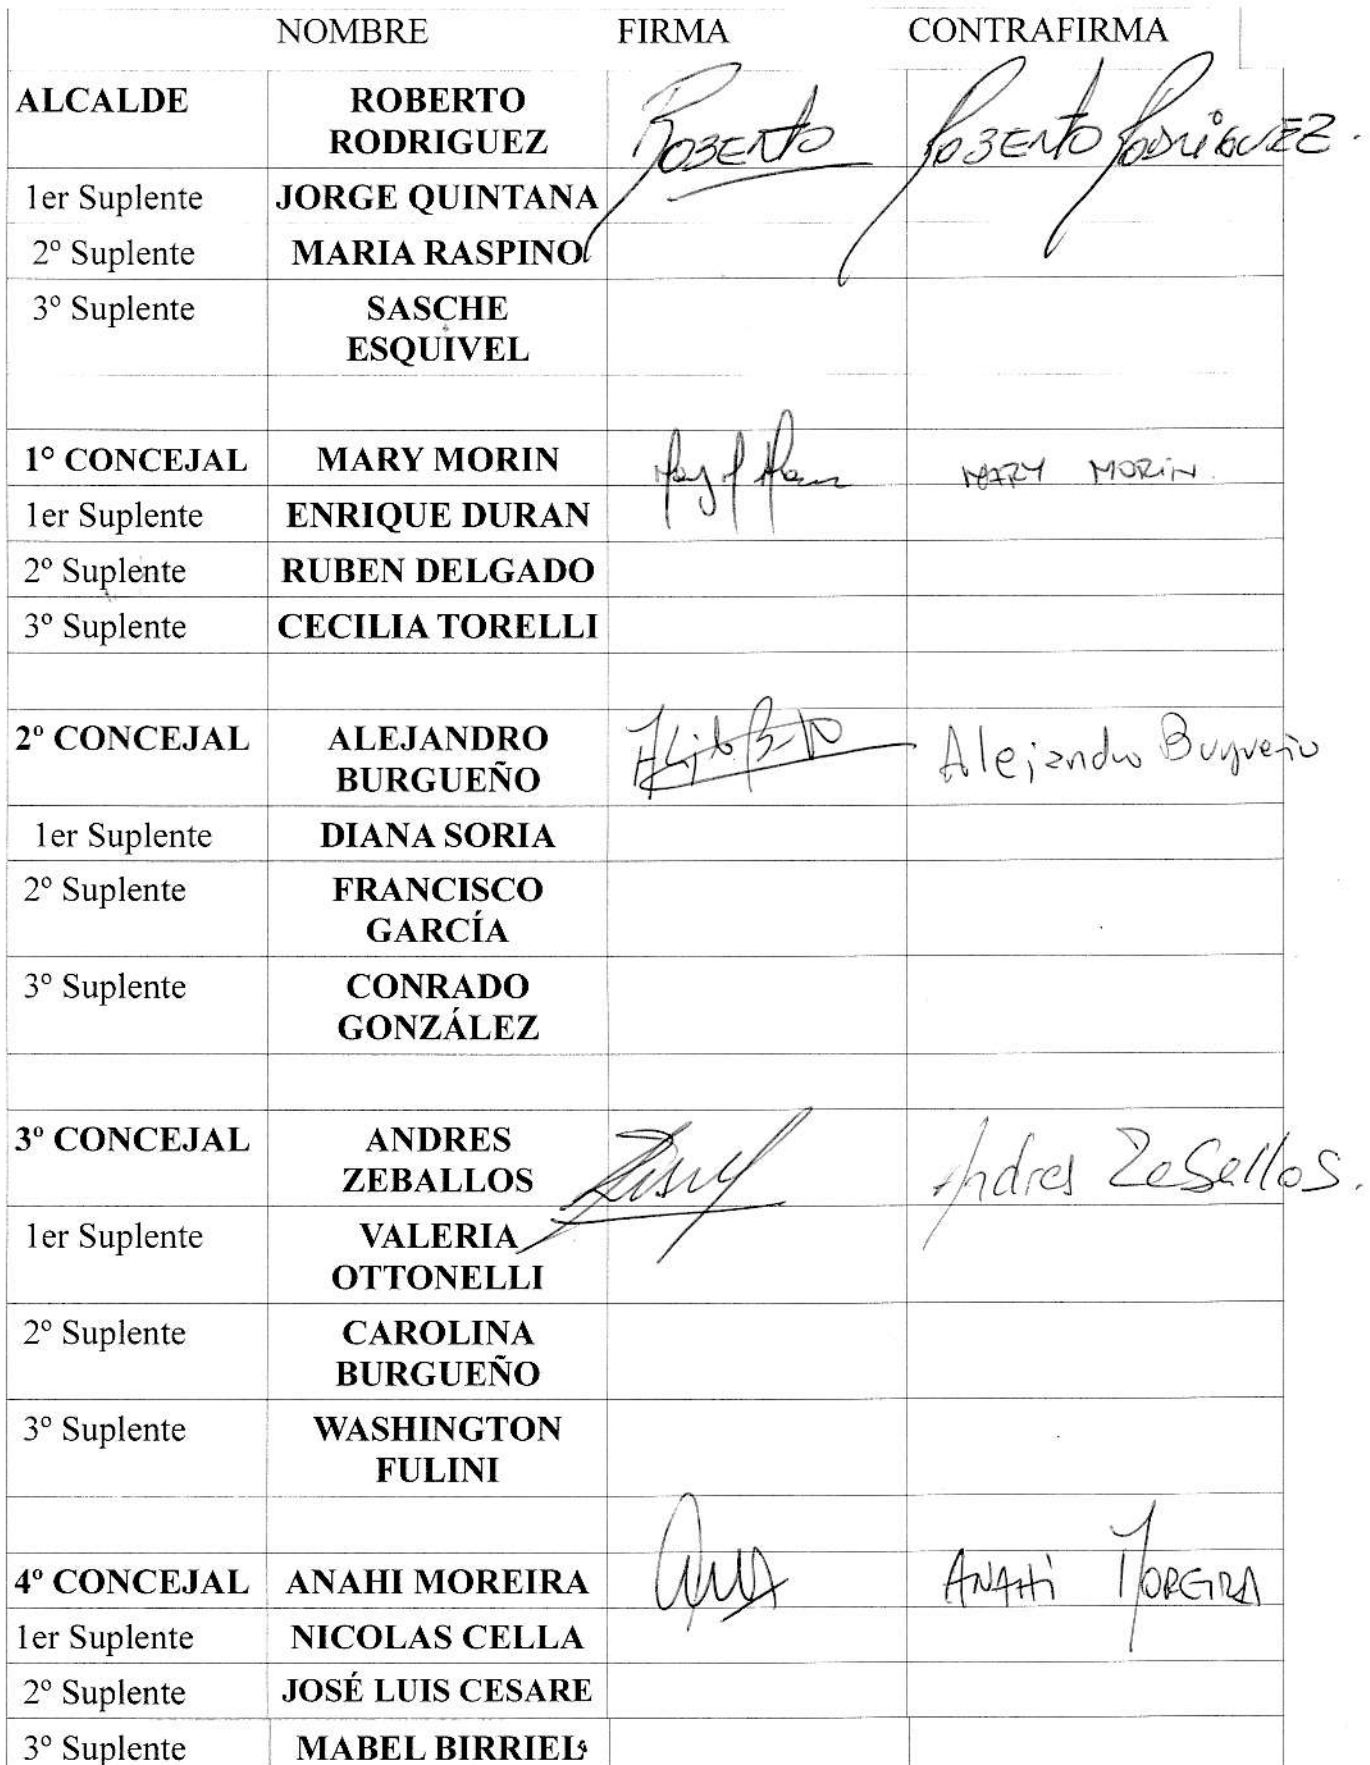 NOMBRE FIRMA CONTRAFIRMA
ALCALDE ROBERTO
RODRIGUEZ Roberto Roberto Rodriguez.
1er Suplente JORGE QUINTANA
2º Suplente MARIA RASPINO
3º Suplente SASCHE
ESQUIVEL
1º CONCEJAL MARY MORIN MARY MORIN.
1er Suplente ENRIQUE DURAN
2º Suplente RUBEN DELGADO
3º Suplente CECILIA TORELLI
2º CONCEJAL ALEJANDRO
BURGUEÑO Alejandro Burgueño
1er Suplente DIANA SORIA
2º Suplente FRANCISCO
GARCÍA
3º Suplente CONRADO
GONZÁLEZ
3º CONCEJAL ANDRES
ZEBALLOS Andres Zeballos.
1er Suplente VALERIA
OTTONELLI
2º Suplente CAROLINA
BURGUEÑO
3º Suplente WASHINGTON
FULINI
4º CONCEJAL ANAHI MOREIRA ANAHI MOREIRA
1er Suplente NICOLAS CELLA
2º Suplente JOSÉ LUIS CESARE
3º Suplente MABEL BIRRIEL